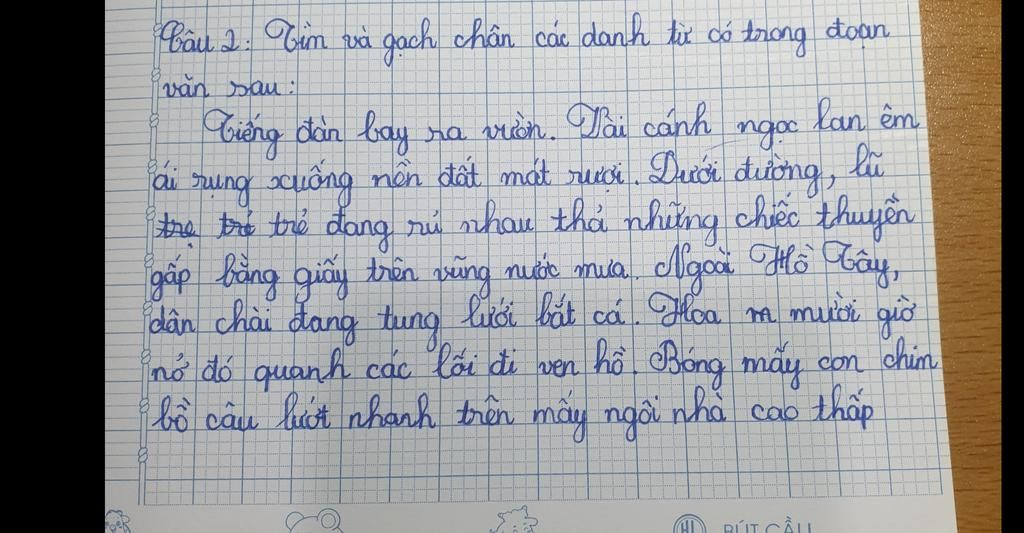 Câu 2: Tìm và gạch chân các danh từ có trong đoạn
văn sau:
Tiếng đàn bay ra vườn. Vài cánh ngọc lan êm
ái rụng xuống nền đất mát rượi. Dưới đường, lũ
trẻ đang rủ nhau thả những chiếc thuyền
gấp bằng giấy trên vũng nước mưa. Ngoài Hồ Tây,
dân chài đang tung lưới bắt cá. Hoa mười giờ
nở đỏ quanh các lối đi ven hồ. Bóng mấy con chim
bồ câu lướt nhanh trên mấy ngôi nhà cao thấp
BÚT CẦU